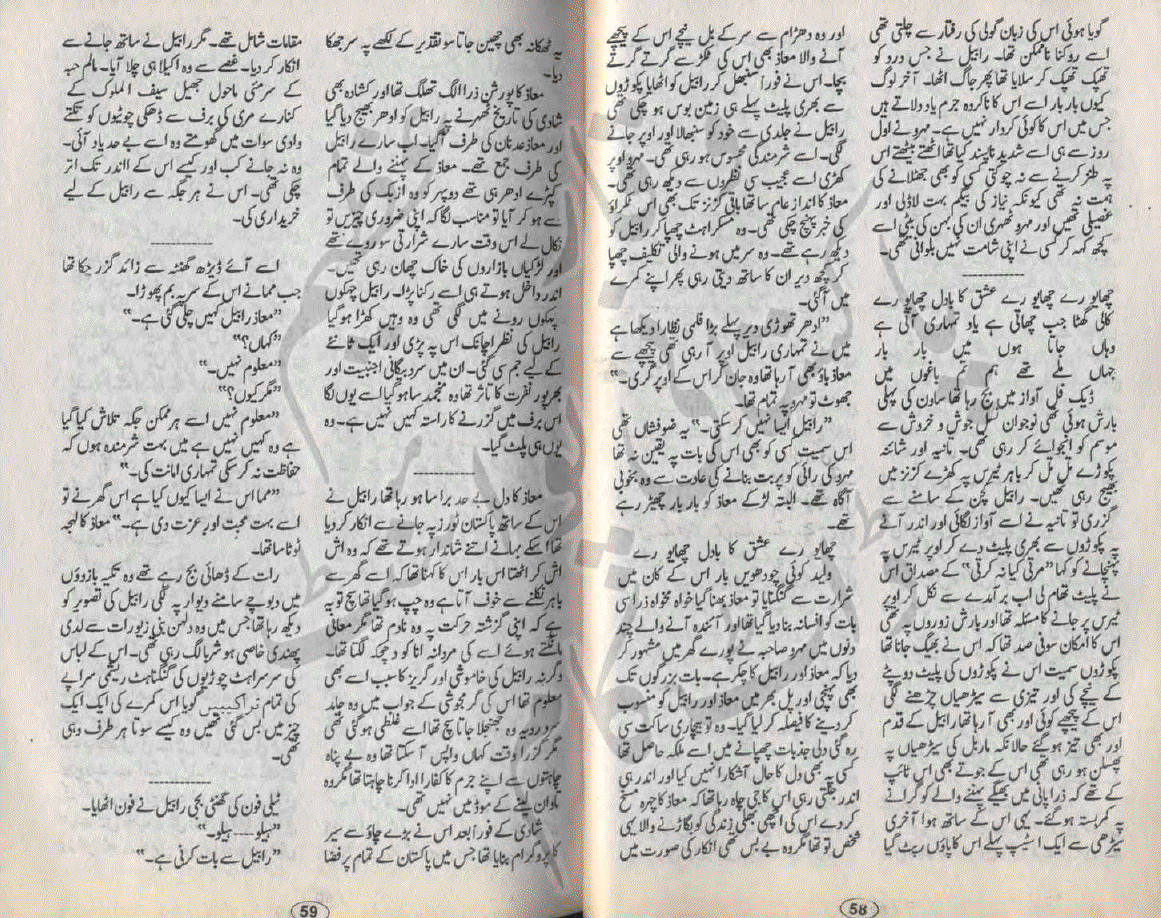 گویا ہوئی اس کی زبان گولی کی رفتار سے چلتی تھی
اسے روکنا ناممکن تھا۔ رابیل نے جس درد کو
تھپک تھپک کر سلایا تھا پھر جاگ اٹھا۔ آخر لوگ
کیوں بار بار اسے اس کا ناکردہ جرم یاد دلاتے ہیں
جس میں اس کا کوئی کردار نہیں ہے۔ مہرو نے اول
روز سے ہی اسے شدید ناپسند کیا تھا اٹھتے بیٹھتے اس
پہ طنز کرنے سے نہ چوکتی کسی کو بھی جھٹلانے کی
ہمت نہ تھی کیونکہ نیاز کی بیگم بہت لاڈلی اور
غصیلی تھیں اور مہرو ٹھہری ان کی بہن کی بیٹی اسے
کچھ کہہ کر کسی نے اپنی شامت نہیں بلوانی تھی۔
چھایو رے چھایو رے عشق کا بادل چھایو رے
کالی گھٹا جب چھاتی ہے یاد تمہاری آتی ہے
وہاں جاتا ہوں میں بار بار
جہاں ملے تھے ہم تم باغوں میں
ڈیک فل آواز میں بج رہا تھا ساون کی پہلی
بارش ہوئی تھی نوجوان نسل جوش و خروش سے
موسم کو انجوائے کر رہی تھی۔ ثانیہ اور شائنہ
پکوڑے تل تل کر باہر ٹیرس پر کھڑے کزنز میں
بھیج رہی تھیں۔ رابیل کچن کے سامنے سے
گزری تو ثانیہ نے اسے آواز لگائی اور اندر آنے
پہ پکوڑوں سے بھری پلیٹ دے کر اوپر ٹیرس پہ
پہنچانے کو کہا ”مرتی کیا نہ کرتی“ کے مصداق اس
نے پلیٹ تھام لی اب برآمدے سے نکل کر اوپر
ٹیرس پر جانے کا مسئلہ تھا اور بارش زوروں پہ تھی
اس کا امکان سوفی صد تھا کہ اس نے بھیگ جانا تھا
پکوڑوں سمیت اس نے پکوڑوں کی پلیٹ دوپٹے
کے نیچے کی اور تیزی سے سیڑھیاں چڑھنے لگی
اس کے پیچھے کوئی اور بھی آ رہا تھا رابیل کے قدم
اور بھی تیز ہو گئے حالانکہ ماربل کی سیڑھیاں پہ
پھسلن ہو رہی تھی اس کے جوتے بھی اس ٹائپ
کے تھے کہ ذرا پانی میں بھیگے پہننے والے کو گرانے
پہ کمربستہ ہو گئے۔ یہی اس کے ساتھ ہوا آخری
سیڑھی سے ایک اسٹیپ پہلے اس کا پاؤں رپٹ گیا
اور وہ دھڑام سے سر کے بل نیچے اس کے پیچھے
آنے والا معاذ بھی اس کی ٹکر سے گرتے گرتے
بچا۔ اس نے فوراً سنبھل کر رابیل کو اٹھایا پکوڑوں
سے بھری پلیٹ پہلے ہی زمین بوس ہو چکی تھی
رابیل نے جلدی سے خود کو سنبھالا اور اوپر جانے
لگی۔ اسے شرمندگی محسوس ہو رہی تھی۔ مہرو اوپر
کھڑی اسے عجیب سی نظروں سے دیکھ رہی تھی۔
معاذ کا انداز عام سا تھا باقی کزنز تک بھی اس ٹکراؤ
کی خبر پہنچ چکی تھی۔ وہ مسکراہٹ چھپا کر رابیل کو
دیکھ رہے تھے۔ وہ سر میں ہونے والی تکلیف چھپا
کر کچھ دیر ان کا ساتھ دیتی رہی پھر اپنے کمرے
میں آ گئی۔
”ادھر تھوڑی دیر پہلے بڑا فلمی نظارا دیکھا ہے
میں نے تمہاری رابیل اوپر آ رہی تھی پیچھے سے
معاذ باؤ بھی آ رہا تھا وہ جان کر اس کے اوپر گری۔“
جھوٹ تو مہرو پہ تمام تھا۔
”رابیل ایسا نہیں کر سکتی۔“ یہ ضوفشاں تھی
اس سمیت کسی کو بھی اس کی بات پہ یقین نہ تھا
مہرو کی رائی کو پربت بنانے کی عادت سے وہ بخوبی
آگاہ تھے۔ البتہ لڑکے معاذ کو بار بار چھیڑ رہے
تھے۔
چھایو رے عشق کا بادل چھایو رے
ولید کوئی چودھویں بار اس کے کان میں
شرارت سے گنگنایا تو معاذ بھنا گیا خواہ مخواہ ذرا سی
بات کو افسانہ بنا دیا گیا تھا اور آئندہ آنے والے چند
دنوں میں مہرو صاحبہ نے پورے گھر میں مشہور کر
دیا کہ معاذ اور رابیل کا چکر ہے۔ بات بزرگوں تک
بھی پہنچی اور پل بھر میں معاذ اور رابیل کو منسوب
کر دینے کا فیصلہ کر لیا گیا۔ وہ تو بیچاری ساکت سی
رہ گئی دلی جذبات چھپانے میں اسے ملکہ حاصل تھا
کسی پہ بھی دل کا حال آشکارا نہیں کیا اور اندر ہی
اندر جلتی رہی اس کا جی چاہ رہا تھا کہ معاذ کا چہرہ مسخ
کر دے اس کی اچھی بھلی زندگی کو بگاڑنے والا یہی
شخص تو تھا مگر وہ بے بس تھی انکار کی صورت میں
58
یہ ٹھکانہ بھی چھین جاتا سو تقدیر کے لکھے پہ سر جھکا
دیا۔
معاذ کا پورشن ذرا الگ تھلگ تھا اور کشادہ بھی
شادی کی تاریخ ٹھہرنے پہ رابیل کو ادھر بھیج دیا گیا
اور معاذ عدنان کی طرف آ گیا۔ اب سارے رابیل
کی طرف جمع تھے۔ معاذ کے پہننے والے تمام
کپڑے ادھر ہی تھے دوپہر کو وہ ازبک کی طرف
سے ہو کر آیا تو مناسب لگا کہ اپنی ضروری چیزیں تو
نکال لے اس وقت سارے شرارتی سو رہے تھے
اور لڑکیاں بازاروں کی خاک چھان رہی تھیں۔
اندر داخل ہوتے ہی اسے رکنا پڑا۔ رابیل چپکوں
پہکوں رونے میں لگی تھی وہ وہیں کھڑا ہو گیا
رابیل کی نظر اچانک اس پہ پڑی اور ایک ثانئے
کے لیے جم سی گئی۔ ان میں سرد بیگانی اجنبیت اور
بھرپور نفرت کا تاثر تھا وہ منجمد سا ہو گیا اسے یوں لگا
اس برف میں گزرنے کا راستہ کہیں نہیں ہے۔ وہ
یوں ہی پلٹ گیا۔
معاذ کا دل بے حد برا سا ہو رہا تھا رابیل نے
اس کے ساتھ پاکستان ٹورز پہ جانے سے انکار کر دیا
تھا اسکے بہانے اتنے شاندار ہوتے تھے کہ وہ اش
اش کر اٹھتا اس بار اس کا کہنا تھا کہ اسے گھر سے
باہر نکلنے سے خوف آتا ہے وہ چپ ہو گیا تھا سچ تو یہ
ہے کہ اپنی گزشتہ حرکت پہ وہ نادم تھا مگر معافی
مانگتے ہوئے اسے کی مردانہ انا کو دھچکہ لگتا تھا۔
وگرنہ رابیل کی خاموشی اور گریز کا سبب اسے بھی
معلوم تھا اس کی گرمجوشی کے جواب میں وہ جامد
سرد رویہ وہ جھنجلا جاتا سچ تھا اسے غلطی ہو گئی تھی
مگر گزرا وقت کہاں واپس آ سکتا تھا وہ بے پناہ
چاہتوں سے اپنے جرم کا کفارا ادا کرنا چاہتا تھا مگر وہ
تاوان لینے کے موڈ میں نہیں تھی۔
شادی کے فوراً بعد اس نے بڑے چاؤ سے سیر
کا پروگرام بنایا تھا جس میں پاکستان کے تمام پرفضا
مقامات شامل تھے۔ مگر رابیل نے ساتھ جانے سے
انکار کر دیا۔ غصے سے وہ اکیلا ہی چلا آیا۔ مالم جبہ
کے سرمئی ماحول جھیل سیف الملوک کے
کنارے مری کی برف سے ڈھکی چوٹیوں کو تکتے
وادی سوات میں گھومتے وہ اسے بے حد یاد آئی۔
وہ نہ جانے کب اور کیسے اس کے ااندر تک اتر
چکی تھی۔ اس نے ہر جگہ سے رابیل کے لیے
خریداری کی۔
اسے آئے ڈیڑھ گھنٹہ سے زائد گزر چکا تھا
جب ممانے اس کے سر پہ بم پھوڑا۔
”معاذ رابیل کہیں چلی گئی ہے۔“
”کہاں؟“
”معلوم نہیں۔“
”مگر کیوں؟“
”معلوم نہیں اسے ہر ممکن جگہ تلاش کیا گیا
ہے وہ کہیں نہیں ہے میں بہت شرمندہ ہوں کہ
حفاظت نہ کر سکی تمہاری امانت کی۔“
”مما اس نے ایسا کیوں کیا ہے اس گھر نے تو
اسے بہت محبت اور عزت دی ہے۔“ معاذ کا لہجہ
ٹوٹا سا تھا۔
رات کے ڈھائی بج رہے تھے وہ تکیہ بازوؤں
میں دبوچے سامنے دیوار پہ لگی رابیل کی تصویر کو
دیکھ رہا تھا جس میں وہ دلہن بنی زیورات سے لدی
پھندی خاصی ہو شربا لگ رہی تھی۔ اس کے لباس
کی سرسراہٹ چوڑیوں کی گنگناہٹ ریشمی سراپے
کی تمام نزاکتیں گویا اس کمرے کی ایک ایک
چیز میں بس گئی تھیں وہ کیسے سوتا ہر طرف وہی
تھی۔
ٹیلی فون کی گھنٹی بجی رابیل نے فون اٹھایا۔
”ہیلو۔۔۔۔ ہیلو۔“
”رابیل سے بات کرنی ہے۔“
59